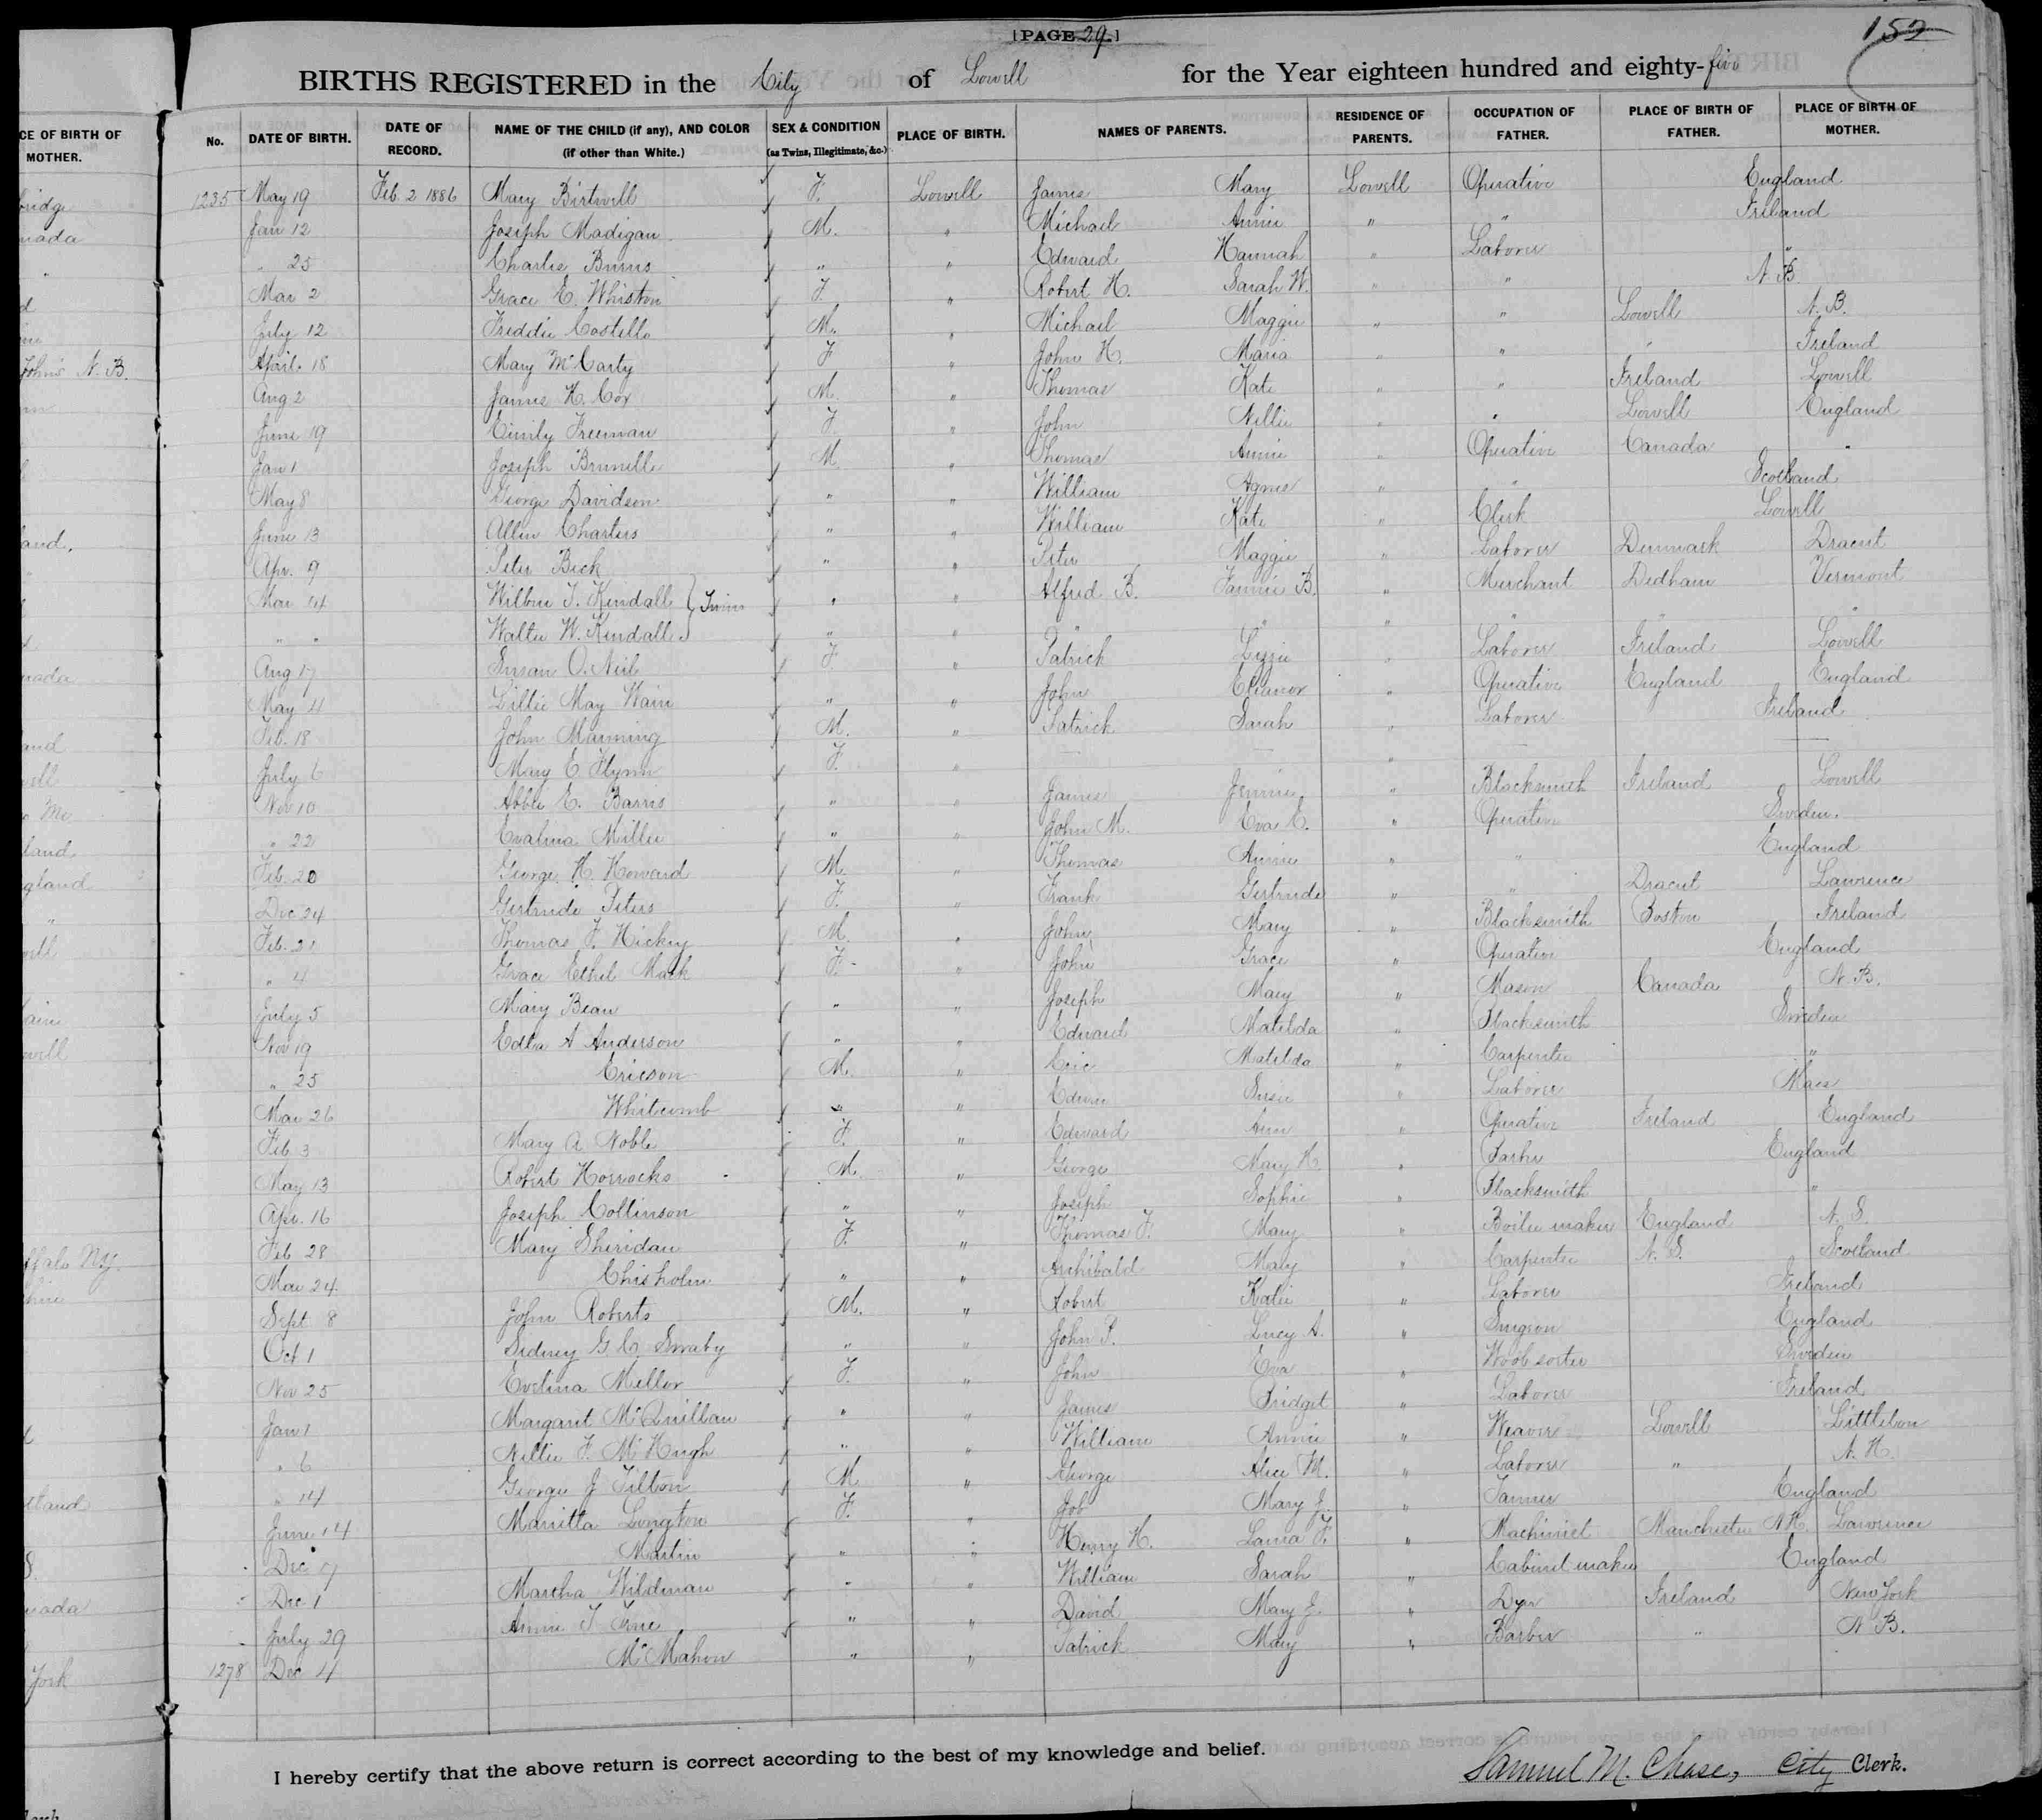 [PAGE 29.]
152
BIRTHS REGISTERED in the City of Lowell for the Year eighteen hundred and eighty-five
CE OF BIRTH OF MOTHER.
No. DATE OF BIRTH. DATE OF RECORD. NAME OF THE CHILD (if any), AND COLOR (if other than White.) SEX & CONDITION (as Twins, Illegitimate, &c.) PLACE OF BIRTH. NAMES OF PARENTS. RESIDENCE OF PARENTS. OCCUPATION OF FATHER. PLACE OF BIRTH OF FATHER. PLACE OF BIRTH OF MOTHER.
1235 May 19 Feb. 2 1886 Mary Birtwell F. Lowell James Mary Lowell Operative England
Jan 12 Joseph Madigan M. " Michael Annie " " Ireland
" 25 Charlie Burns " " Edward Hannah " Laborer "
Mar 2 Grace E. Whiston F. " Robert H. Sarah W. " " N. B.
July 12 Freddie Costello M. " Michael Maggie " " Lowell N. B.
April 18 Mary McCarty F " John H. Maria " " " Ireland
Aug 2 James H. Cox M. " Thomas Kate " " Ireland Lowell
June 19 Emily Freeman F. " John Nellie " " Lowell England
Jan 1 Joseph Brunelle M. " Thomas Annie " Operative Canada "
May 8 George Davidson " " William Agnes " " Scotland
June 13 Allen Charters " " William Kate " Clerk Lowell
Apr. 9 Peter Beck " " Peter Maggie " Laborer Denmark Dracut
Mar 14 Wilbur T. Kendall } Twins " " Alfred B. Fannie B. " Merchant Dedham Vermont
" " Walter W. Kendall } " " " " " " " "
Aug 17 Susan O. Neil F. " Patrick Lizzie " Laborer Ireland Lowell
May 11 Lillie May Wain " " John Eleanor " Operative England England
Feb. 18 John Manning M. " Patrick Sarah " Laborer Ireland
July 6 Mary E. Flynn F. " — — " — —
Nov 10 Abbie E. Barris " " James Jennie " Blacksmith Ireland Lowell
" 22 Evalina Miller " " John M. Eva E. " Operative Sweden.
Feb. 20 George H. Howard M. " Thomas Annie " " England
Dec 24 Gertrude Peters F. " Frank Gertrude " " Dracut Lawrence
Feb. 21 Thomas F. Hickey M. " John Mary " Blacksmith Boston Ireland
" 4 Grace Ethel Mack F. " John Grace " Operative England
July 5 Mary Bean " " Joseph Mary " Mason Canada N. B.
Nov 19 Edla A Anderson " " Edward Matilda " Blacksmith Sweden
" 25 Ericson M. " Eric Matilda " Carpenter "
Mar 26 Whitcomb " " Edwin Susie " Laborer Mass
Feb 3 Mary A Noble F. " Edward Ann " Operative Ireland England
May 13 Robert Horrocks M. " George Mary H " England
Apr. 16 Joseph Collinson " " Joseph Sophie " Blacksmith "
Feb 28 Mary Sheridan F. " Thomas F. Mary " Boiler maker England N. S.
Mar 24 Chisholm " " Archibald Mary " Carpenter N. S. Scotland
Sept 8 John Roberts M. " Robert Katie " Laborer Ireland
Oct 1 Sidney G. C. Swaby " " John P. Lucy A. " Surgeon England
Nov 25 Evelina Miller F. " John Eva " Wool sorter Sweden
Jan 1 Margaret McQuillan " " James Bridget " Laborer Ireland
" 6 Nellie F. McHugh " " William Annie " Weaver Lowell Littleton
" 14 George J Tilton M. " George Alice M. " Laborer " N. H.
June 14 Marietta Longton F. " Job Mary J. " Tanner England
Dec 17 Martin " " Henry H. Laura F. " Machinist Manchester N.H. Lawrence
Dec 1 Martha Wildman " " William Sarah " Cabinet maker England
July 29 Annie T. " " David Mary J. " Dyer Ireland New York
1278 Dec 4 McMahon " " Patrick Mary " Barber " N. B.
I hereby certify that the above return is correct according to the best of my knowledge and belief.
Samuel M. Chase, City Clerk.